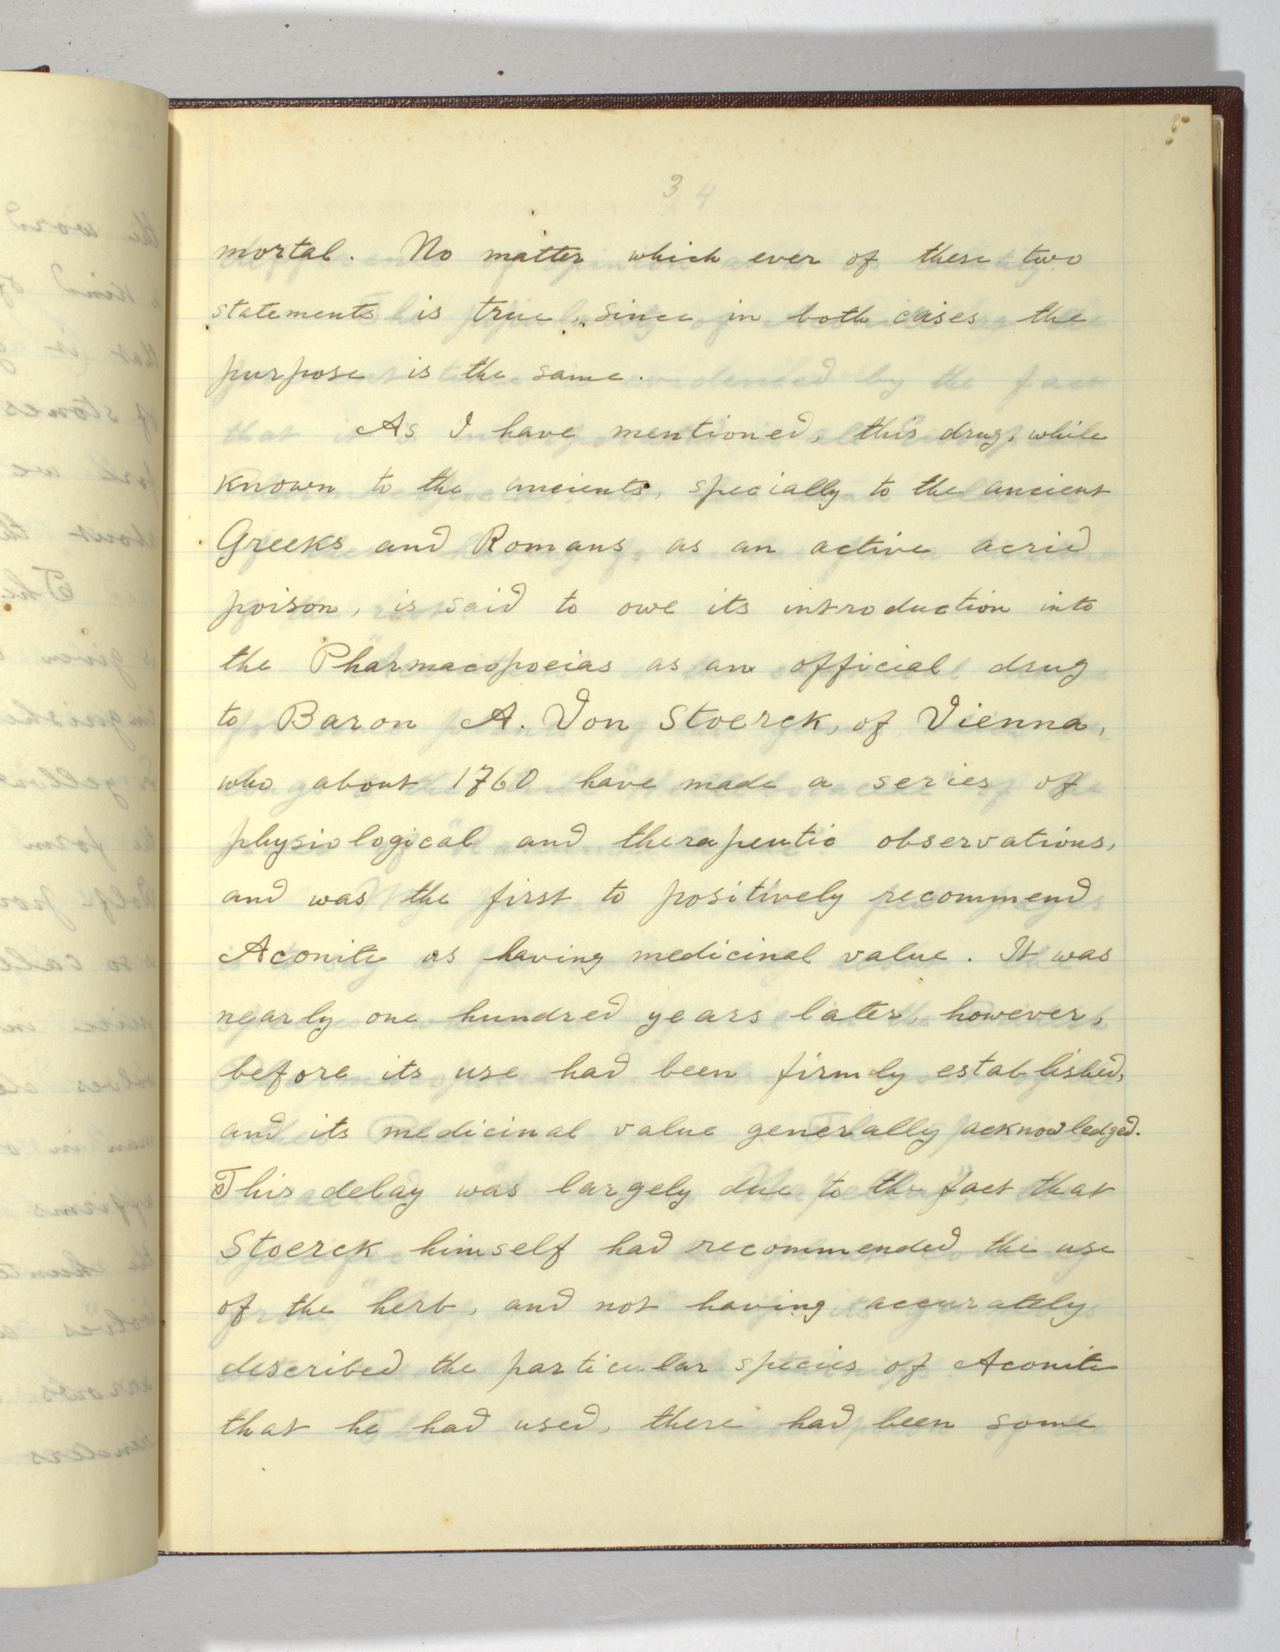 3
mortal. No matter which ever of these two
statements is true, since in both cases the
purpose is the same.
As I have mentioned, this drug, while
known to the ancients, specially to the ancient
Greeks and Romans, as an active acrid
poison, is said to owe its introduction into
the Pharmacopoeias as an official drug
to Baron A. Von Stoerck, of Vienna,
who about 1760 have made a series of
physiological and therapeutic observations,
and was the first to positively recommend
Aconite as having medicinal value. It was
nearly one hundred years later, however,
before its use had been firmly established,
and its medicinal value generally acknowledged.
This delay was largely due to the fact that
Stoerck himself had recommended the use
of the herb, and not having accurately
described the particular species of Aconite
that he had used, there had been some